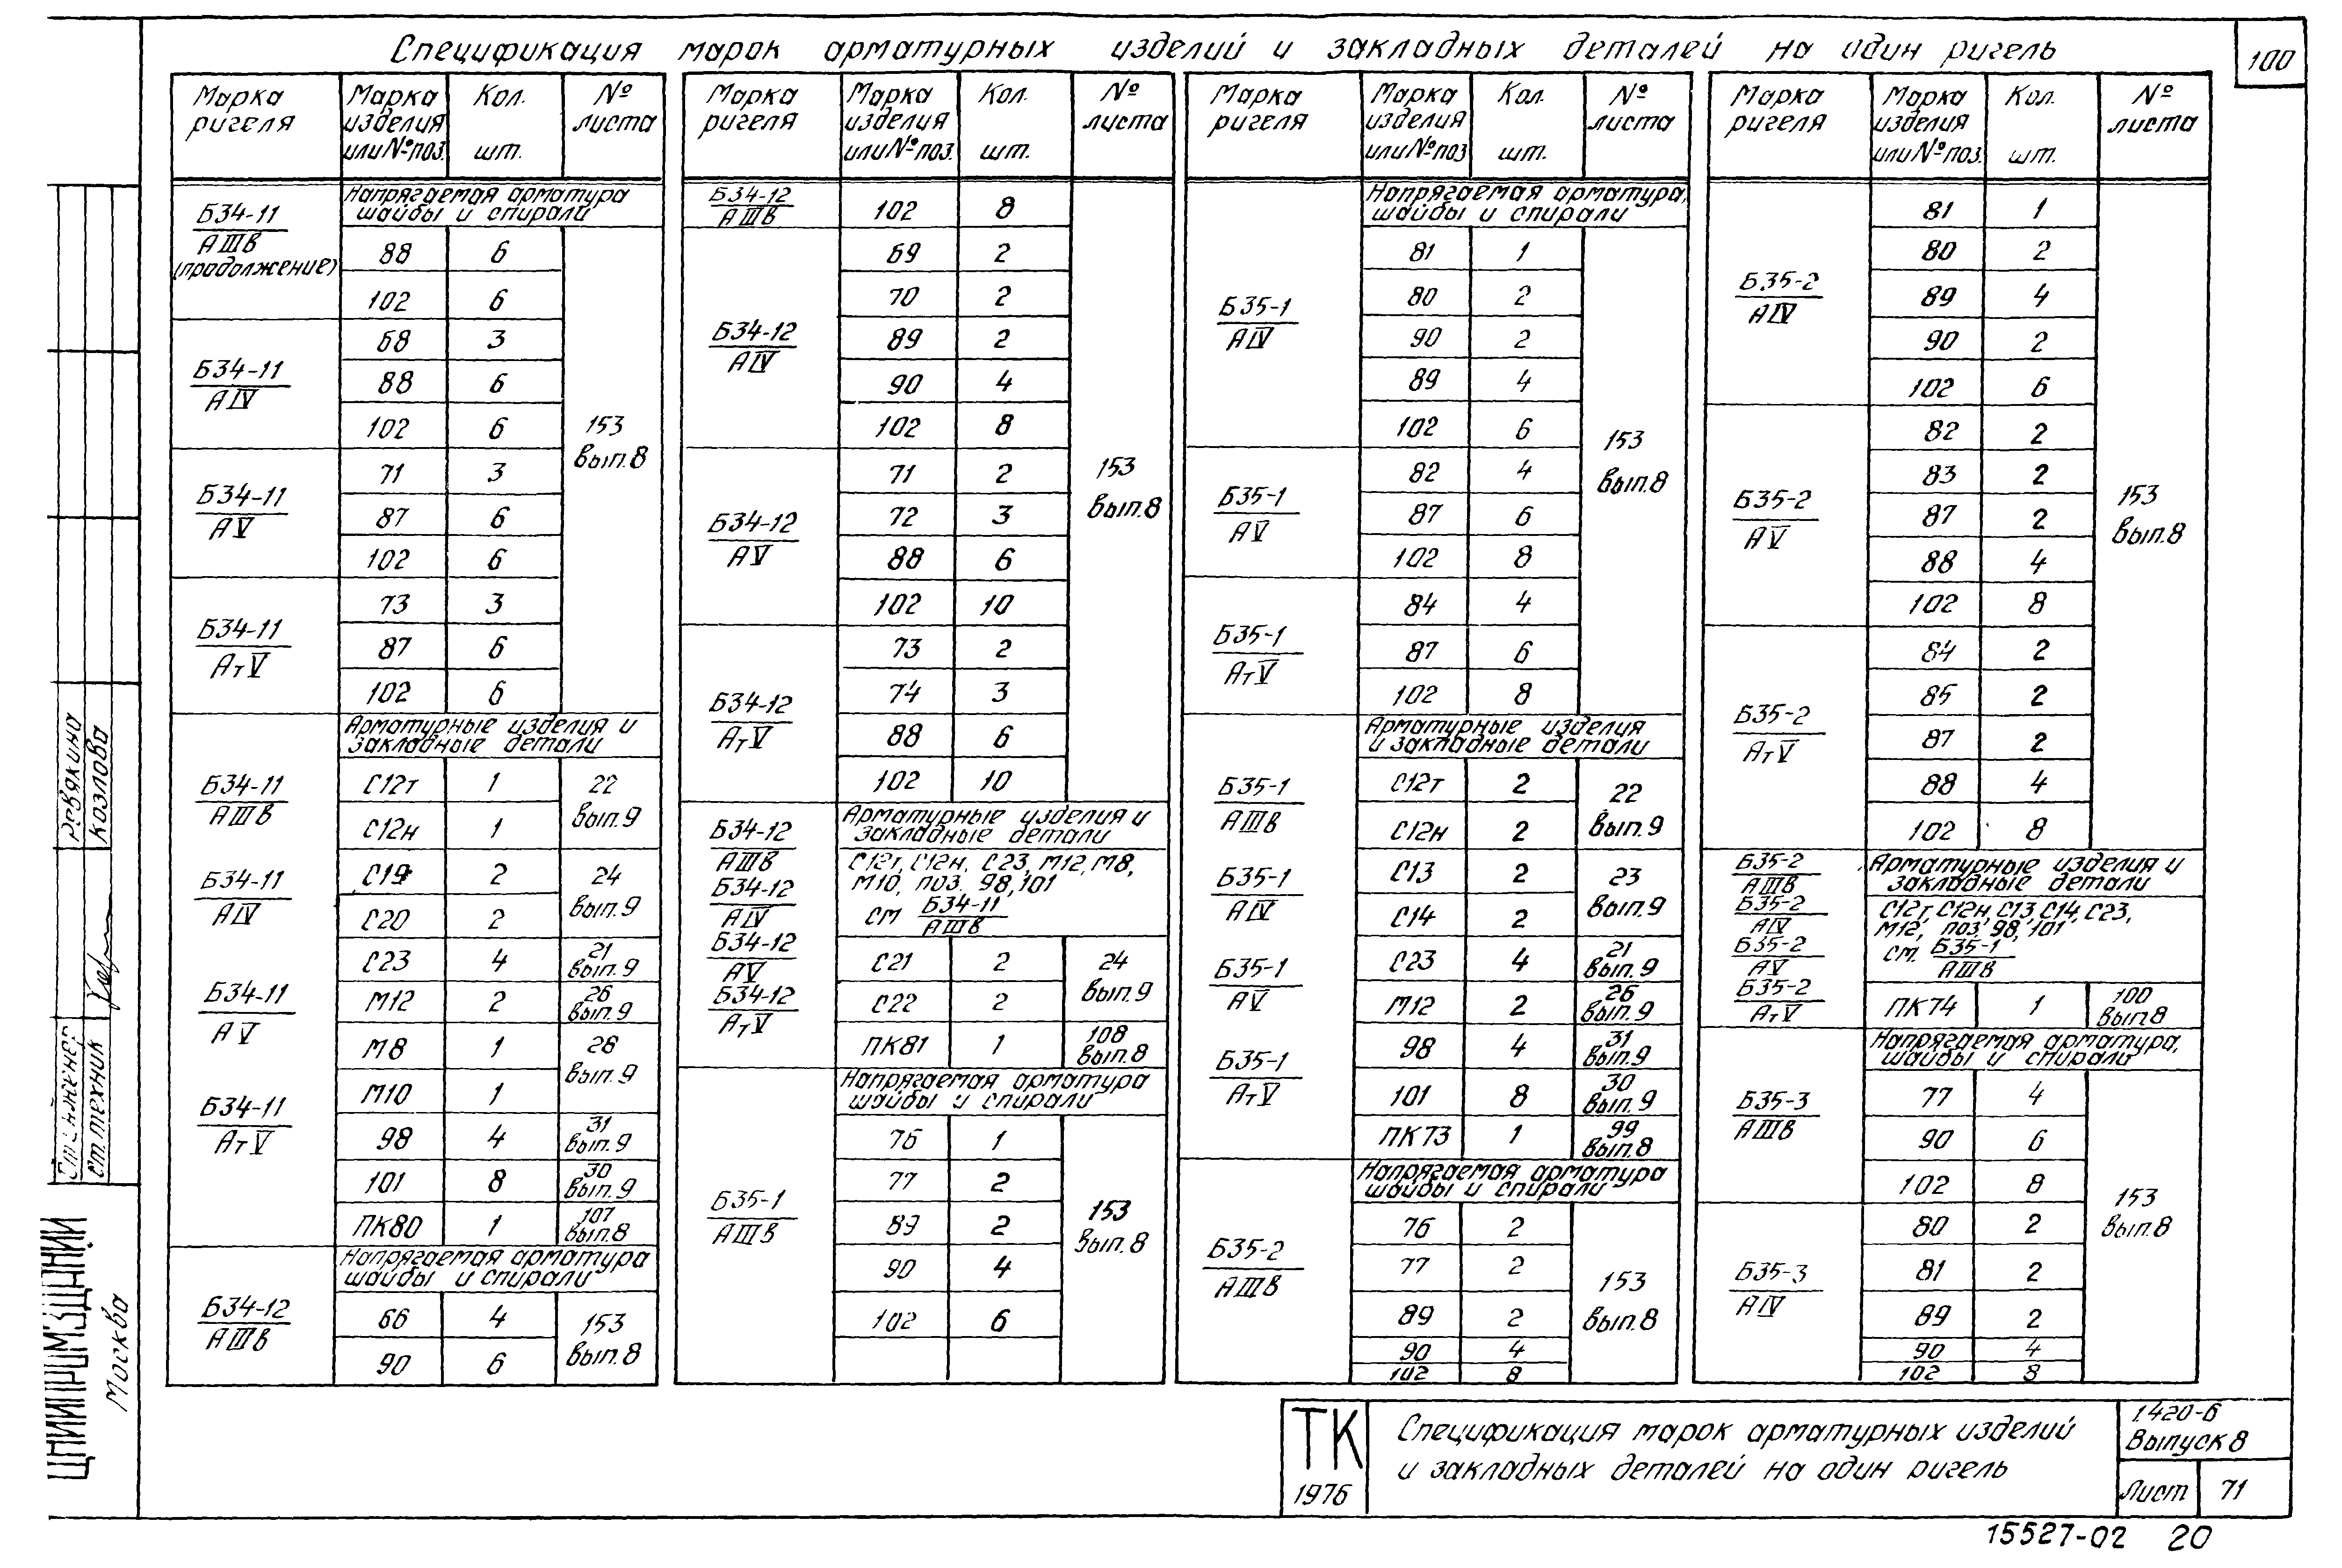 Спецификация марок арматурных изделий и закладных деталей на один ригель
100
Марка ригеля | Марка изделия или № поз. | Кол. шт. | № листа
Б34-11 / АIIIв (продолжение)
Напрягаемая арматура
шайбы и спирали
88 | 6 | 153 вып.8
102 | 6
Б34-11 / АIV
68 | 3
88 | 6
102 | 6
Б34-11 / АV
71 | 3
87 | 6
102 | 6
Б34-11 / АтV
73 | 3
87 | 6
102 | 6
Б34-11 / АIIIв
Б34-11 / АIV
Б34-11 / АV
Б34-11 / АтV
Арматурные изделия и
закладные детали
С12т | 1 | 22 вып.9
С12н | 1
С19 | 2 | 24 вып.9
С20 | 2
С23 | 4 | 21 вып.9
М12 | 2 | 26 вып.9
М8 | 1 | 28 вып.9
М10 | 1
98 | 4 | 31 вып.9
101 | 8 | 30 вып.9
ПК80 | 1 | 107 вып.8
Б34-12 / АIIIв
Напрягаемая арматура
шайбы и спирали
66 | 4 | 153 вып.8
90 | 6
Марка ригеля | Марка изделия или № поз. | Кол. шт. | № листа
Б34-12 / АIIIв
102 | 8 | 153 вып.8
Б34-12 / АIV
69 | 2
70 | 2
89 | 2
90 | 4
102 | 8
Б34-12 / АV
71 | 2
72 | 3
88 | 6
102 | 10
Б34-12 / АтV
73 | 2
74 | 3
88 | 6
102 | 10
Б34-12 / АIIIв
Б34-12 / АIV
Б34-12 / АV
Б34-12 / АтV
Арматурные изделия и
закладные детали
С12т, С12н, С23, М12, М8,
М10, поз. 98, 101
см Б34-11 / АIIIв
С21 | 2 | 24 вып.9
С22 | 2
ПК81 | 1 | 108 вып.8
Б35-1 / АIIIв
Напрягаемая арматура
шайбы и спирали
76 | 1 | 153 вып.8
77 | 2
89 | 2
90 | 4
102 | 6
Марка ригеля | Марка изделия или № поз | Кол. шт. | № листа
Б35-1 / АIV
Напрягаемая арматура,
шайбы и спирали
81 | 1 | 153 вып.8
80 | 2
90 | 2
89 | 4
102 | 6
Б35-1 / АV
82 | 4
87 | 6
102 | 8
Б35-1 / АтV
84 | 4
87 | 6
102 | 8
Б35-1 / АIIIв
Б35-1 / АIV
Б35-1 / АV
Б35-1 / АтV
Арматурные изделия
и закладные детали
С12т | 2 | 22 вып.9
С12н | 2
С13 | 2 | 23 вып.9
С14 | 2
С23 | 4 | 21 вып.9
М12 | 2 | 26 вып.9
98 | 4 | 31 вып.9
101 | 8 | 30 вып.9
ПК73 | 1 | 99 вып.8
Б35-2 / АIIIв
Напрягаемая арматура
шайбы и спирали
76 | 2 | 153 вып.8
77 | 2
89 | 2
90 | 4
102 | 8
Марка ригеля | Марка изделия или № поз. | Кол. шт. | № листа
Б35-2 / АIV
81 | 1 | 153 вып.8
80 | 2
89 | 4
90 | 2
102 | 6
Б35-2 / АV
82 | 2
83 | 2
87 | 2
88 | 4
102 | 8
Б35-2 / АтV
84 | 2
85 | 2
87 | 2
88 | 4
102 | 8
Б35-2 / АIIIв
Б35-2 / АIV
Б35-2 / АV
Б35-2 / АтV
Арматурные изделия и
закладные детали
С12т, С12н, С13, С14, С23,
М12, поз. 98, 101
см. Б35-1 / АIIIв
ПК74 | 1 | 100 вып8
Б35-3 / АIIIв
Напрягаемая арматура,
шайбы и спирали
77 | 4 | 153 вып.8
90 | 6
102 | 8
Б35-3 / АIV
80 | 2
81 | 2
89 | 2
90 | 4
102 | 8
Ревякина
Козлова
ст. техник
ЦНИИПРОМЗДАНИЙ
Москва
ТК
1976
Спецификация марок арматурных изделий
и закладных деталей на один ригель
1.420-6
Выпуск 8
Лист 71
15527-02 20